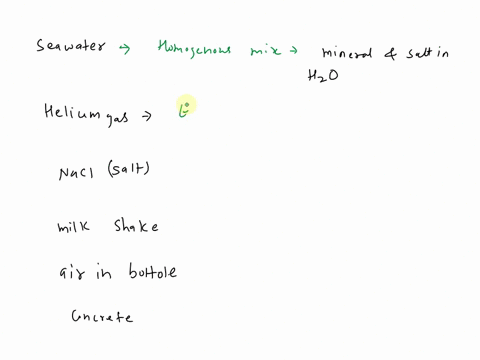 Seawater → Homogenous mix → mineral & salt in
H2O
Helium gas →
NaCl (salt)
milk shake
air in bottole
Concrete